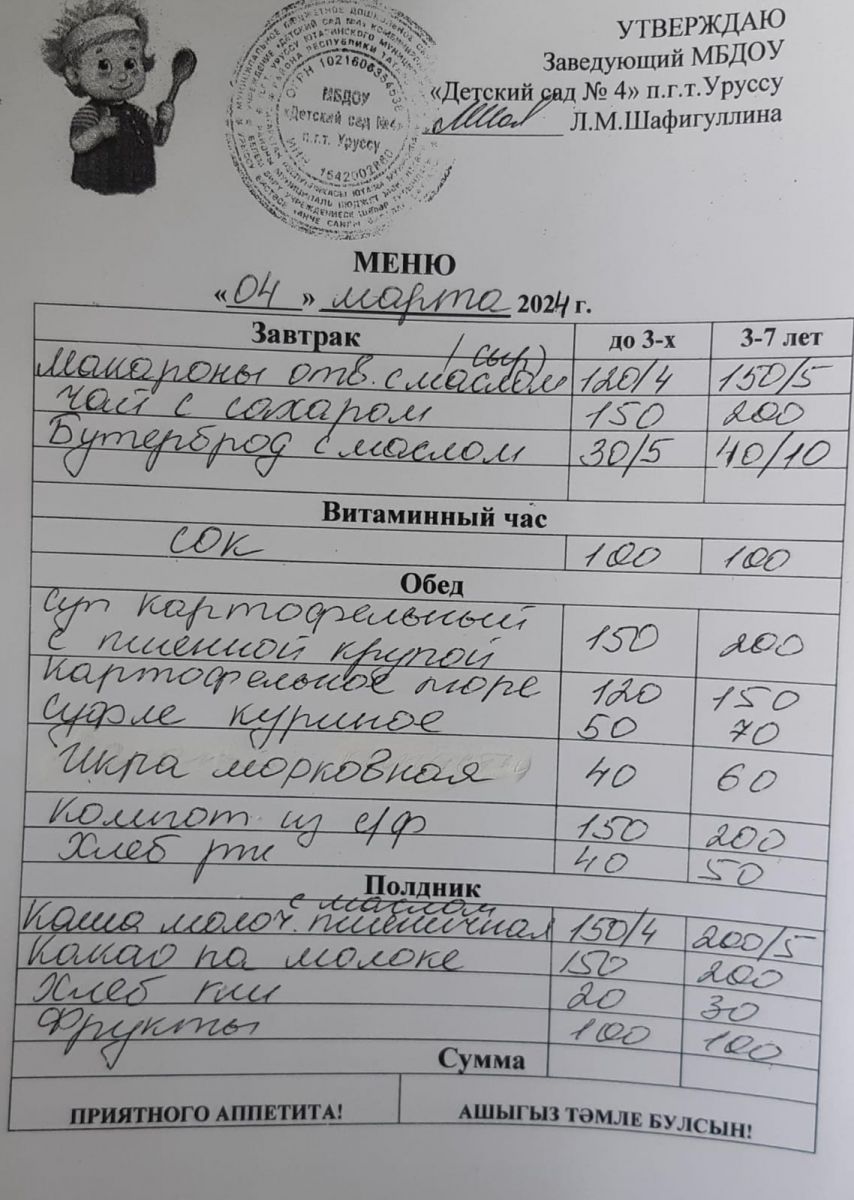 УТВЕРЖДАЮ
Заведующий МБДОУ
«Детский сад № 4» п.г.т.Уруссу
Л.М.Шафигуллина
ОГРН 1021606354538
МБДОУ
«Детский сад №4»
п.г.т. Уруссу
МЕНЮ
«04» марта 2024 г.
Завтрак до 3-х 3-7 лет
(сыр)
Макароны отв. с маслом 120/4 150/5
Чай с сахаром 150 200
Бутерброд с маслом 30/5 40/10
Витаминный час
сок 100 100
Обед
Суп картофельный
с пшенной крупой 150 200
Картофельное пюре 120 150
Суфле куриное 50 70
Икра морковная 40 60
Компот из с/ф 150 200
Хлеб рж 40 50
Полдник
с маслом
Каша молоч. пшеничная 150/4 200/5
Какао на молоке 150 200
Хлеб 20 30
Фрукты 100 100
Сумма
ПРИЯТНОГО АППЕТИТА! АШЫГЫЗ ТӘМЛЕ БУЛСЫН!